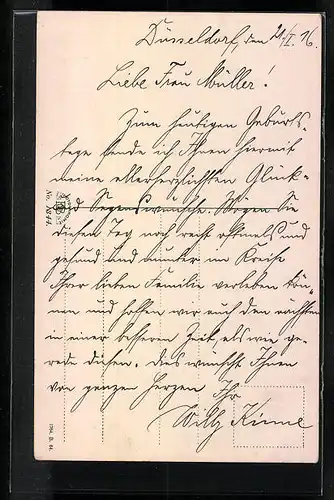 Düsseldorf, den 21/II. 16.
Liebe Frau Müller!
Zum heutigen Geburts-
tage sende ich Ihnen hiermit
meine allerherzlichsten Glück-
und Segenswünsche. Mögen Sie
diesen Tag noch recht oftmals und
gesund und munter im Kreise
Ihrer lieben Familie verleben kön-
nen und hoffen wir auch den nächsten
in einer besseren Zeit, als wie ge-
rade diesen. Dies wünscht Ihnen
von ganzem Herzen Ihr
Willy
No.